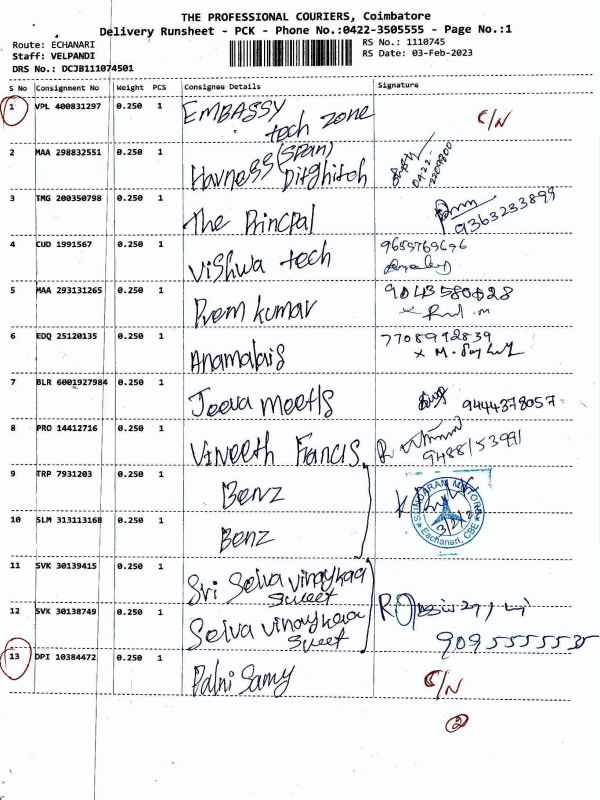 THE PROFESSIONAL COURIERS, Coimbatore
Delivery Runsheet - PCK - Phone No.:0422-3505555 - Page No.:1
Route: ECHANARI
Staff: VELPANDI
DRS No.: DCJB111074501
RS No.: 1110745
RS Date: 03-Feb-2023
S No Consignment No Weight PCS Consignee Details Signature
1 VPL 400831297 0.250 1 EMBASSY tech zone C/N
2 MAA 298832551 0.250 1 (Span) 0422-
3 TMG 200350798 0.250 1 The Princpal 9363233899
4 CUD 1991567 0.250 1 Vishwa tech 9655769696
5 MAA 293131265 0.250 1 Prem kumar 9043580628
6 EDQ 25120135 0.250 1 Anamalais 7708992839
7 BLR 6001927984 0.250 1 Jeeva meetls 9444378057
8 PRO 14412716 0.250 1 Vineeth Francis 9488153991
9 TRP 7931203 0.250 1 Benz
SUNDARAM MOTORS
3/2/23
Eachanari, CBE
10 SLM 313113168 0.250 1 Benz
11 SVK 30139415 0.250 1 Sri Selva vinaykaa sweet
12 SVK 30138749 0.250 1 Selva vinaykaa sweet
13 DPI 10384472 0.250 1 Palni Samy C/N
2